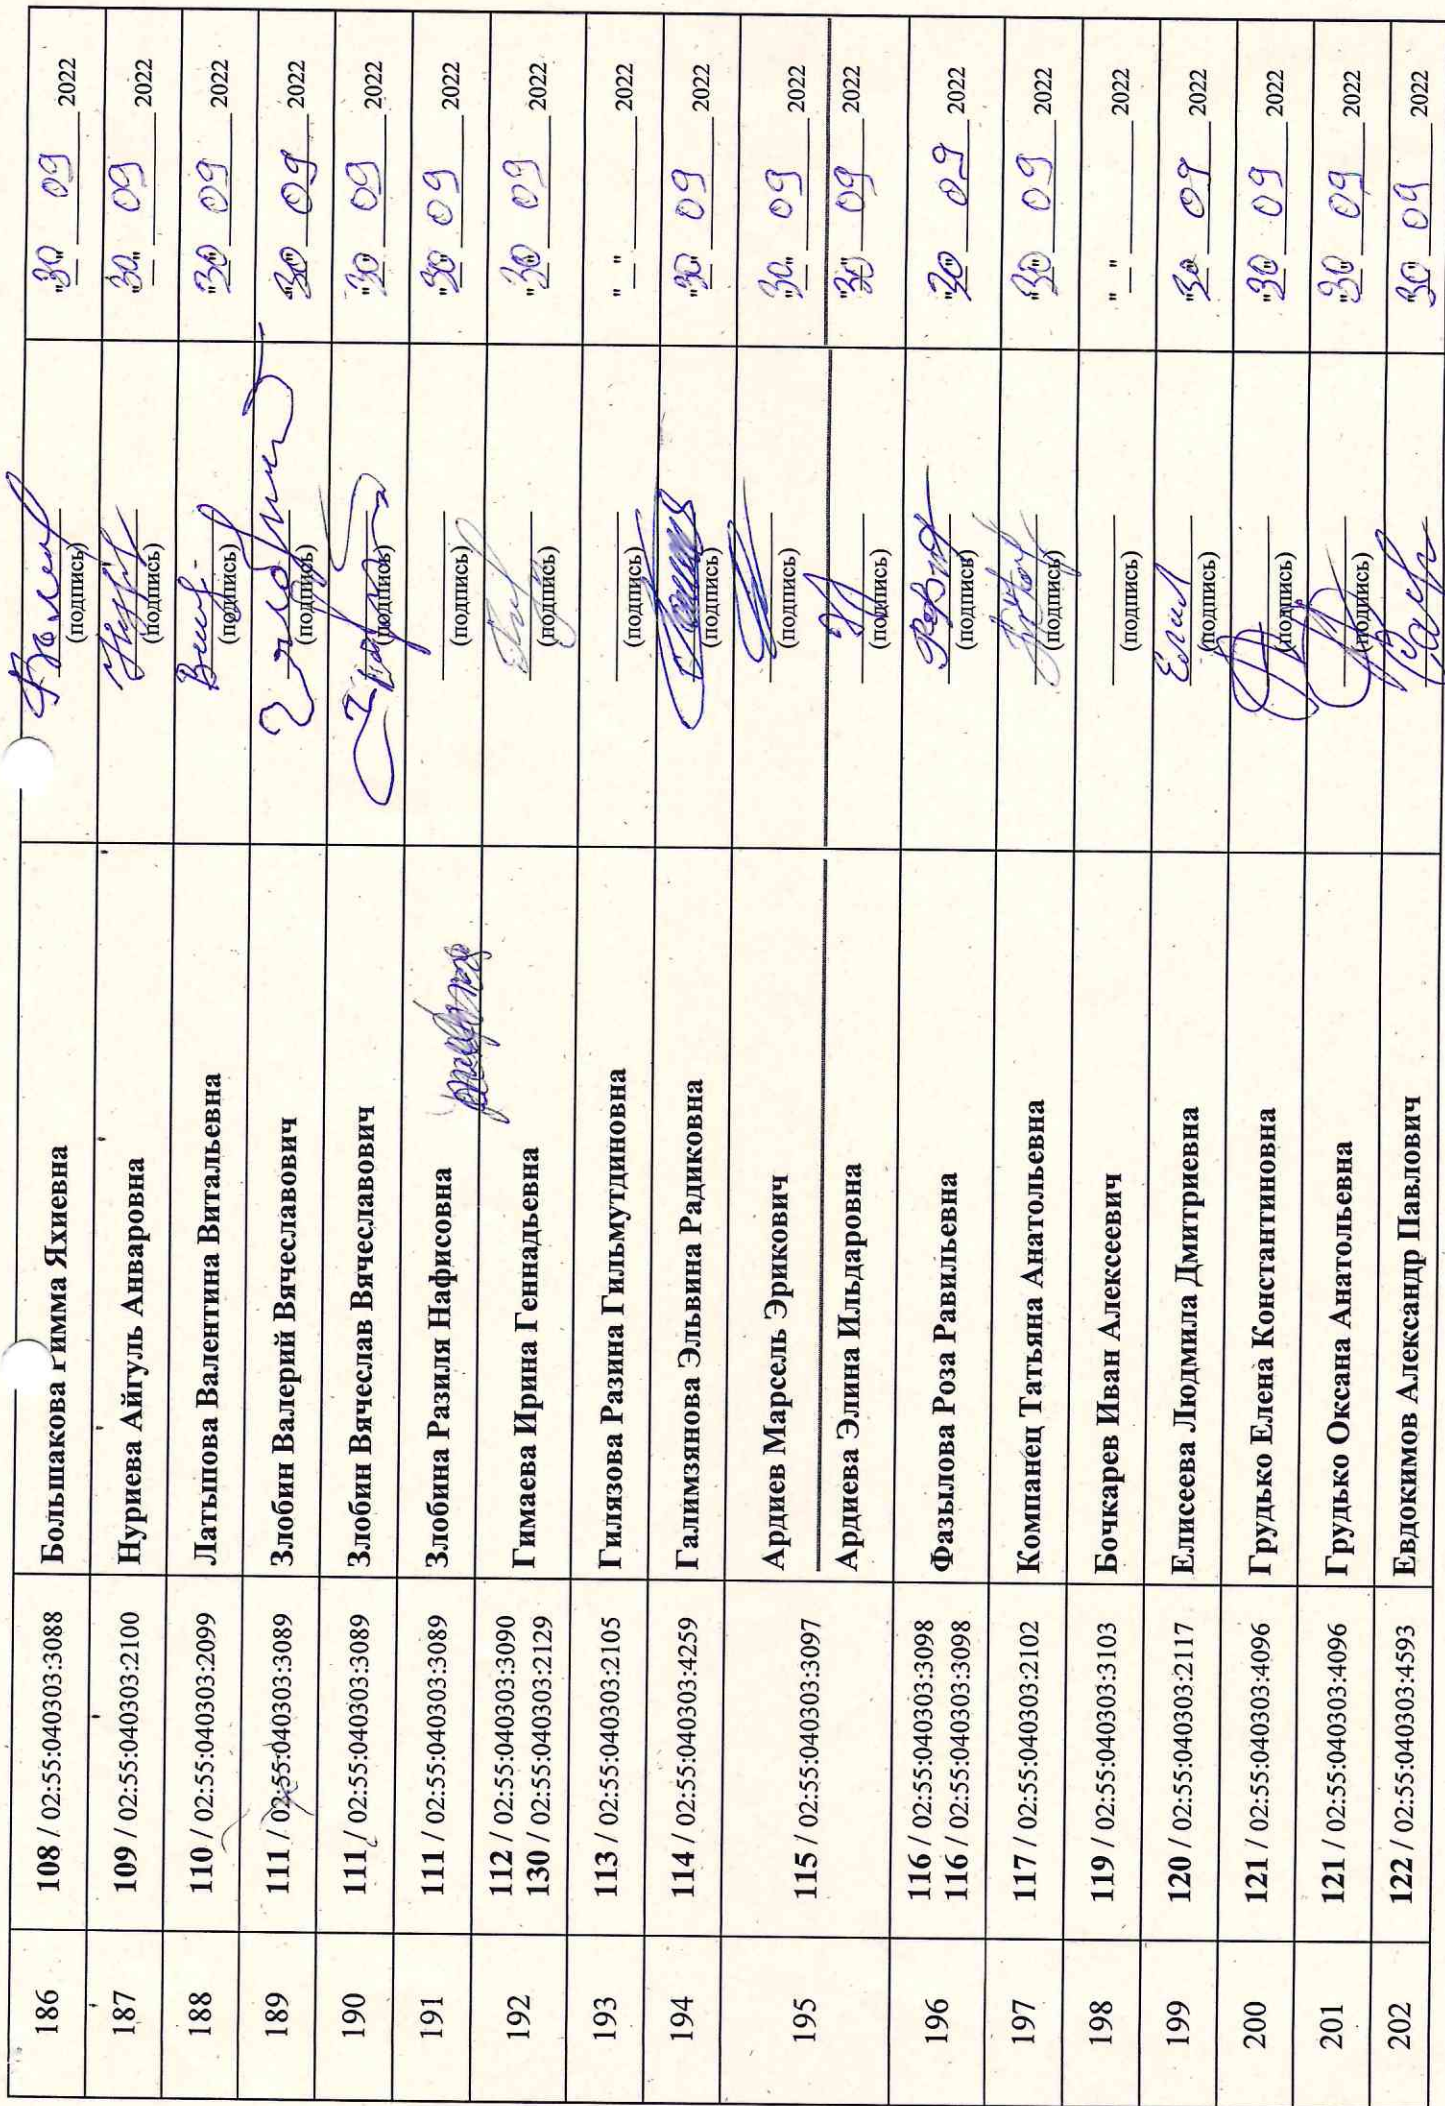 186 108 / 02:55:040303:3088 Большакова Римма Яхиевна (подпись) "30" 09 2022
187 109 / 02:55:040303:2100 Нуриева Айгуль Анваровна (подпись) "30" 09 2022
188 110 / 02:55:040303:2099 Латыпова Валентина Витальевна (подпись) "30" 09 2022
189 111 / 02:55:040303:3089 Злобин Валерий Вячеславович (подпись) "30" 09 2022
190 111 / 02:55:040303:3089 Злобин Вячеслав Вячеславович (подпись) "30" 09 2022
191 111 / 02:55:040303:3089 Злобина Разиля Нафисовна (подпись) "30" 09 2022
192 112 / 02:55:040303:3090 Гимаева Ирина Геннадьевна (подпись) "30" 09 2022
130 / 02:55:040303:2129
193 113 / 02:55:040303:2105 Гилязова Разина Гильмутдиновна (подпись) "__" ______ 2022
194 114 / 02:55:040303:4259 Галимзянова Эльвина Радиковна (подпись) "30" 09 2022
195 115 / 02:55:040303:3097 Ардиев Марсель Эрикович (подпись) "30" 09 2022
Ардиева Элина Ильдаровна (подпись) "30" 09 2022
196 116 / 02:55:040303:3098 Фазылова Роза Равильевна (подпись) "30" 09 2022
116 / 02:55:040303:3098
197 117 / 02:55:040303:2102 Компанец Татьяна Анатольевна (подпись) "30" 09 2022
198 119 / 02:55:040303:3103 Бочкарев Иван Алексеевич (подпись) "__" ______ 2022
199 120 / 02:55:040303:2117 Елисеева Людмила Дмитриевна (подпись) "30" 09 2022
200 121 / 02:55:040303:4096 Грудько Елена Константиновна (подпись) "30" 09 2022
201 121 / 02:55:040303:4096 Грудько Оксана Анатольевна (подпись) "30" 09 2022
202 122 / 02:55:040303:4593 Евдокимов Александр Павлович "30" 09 2022